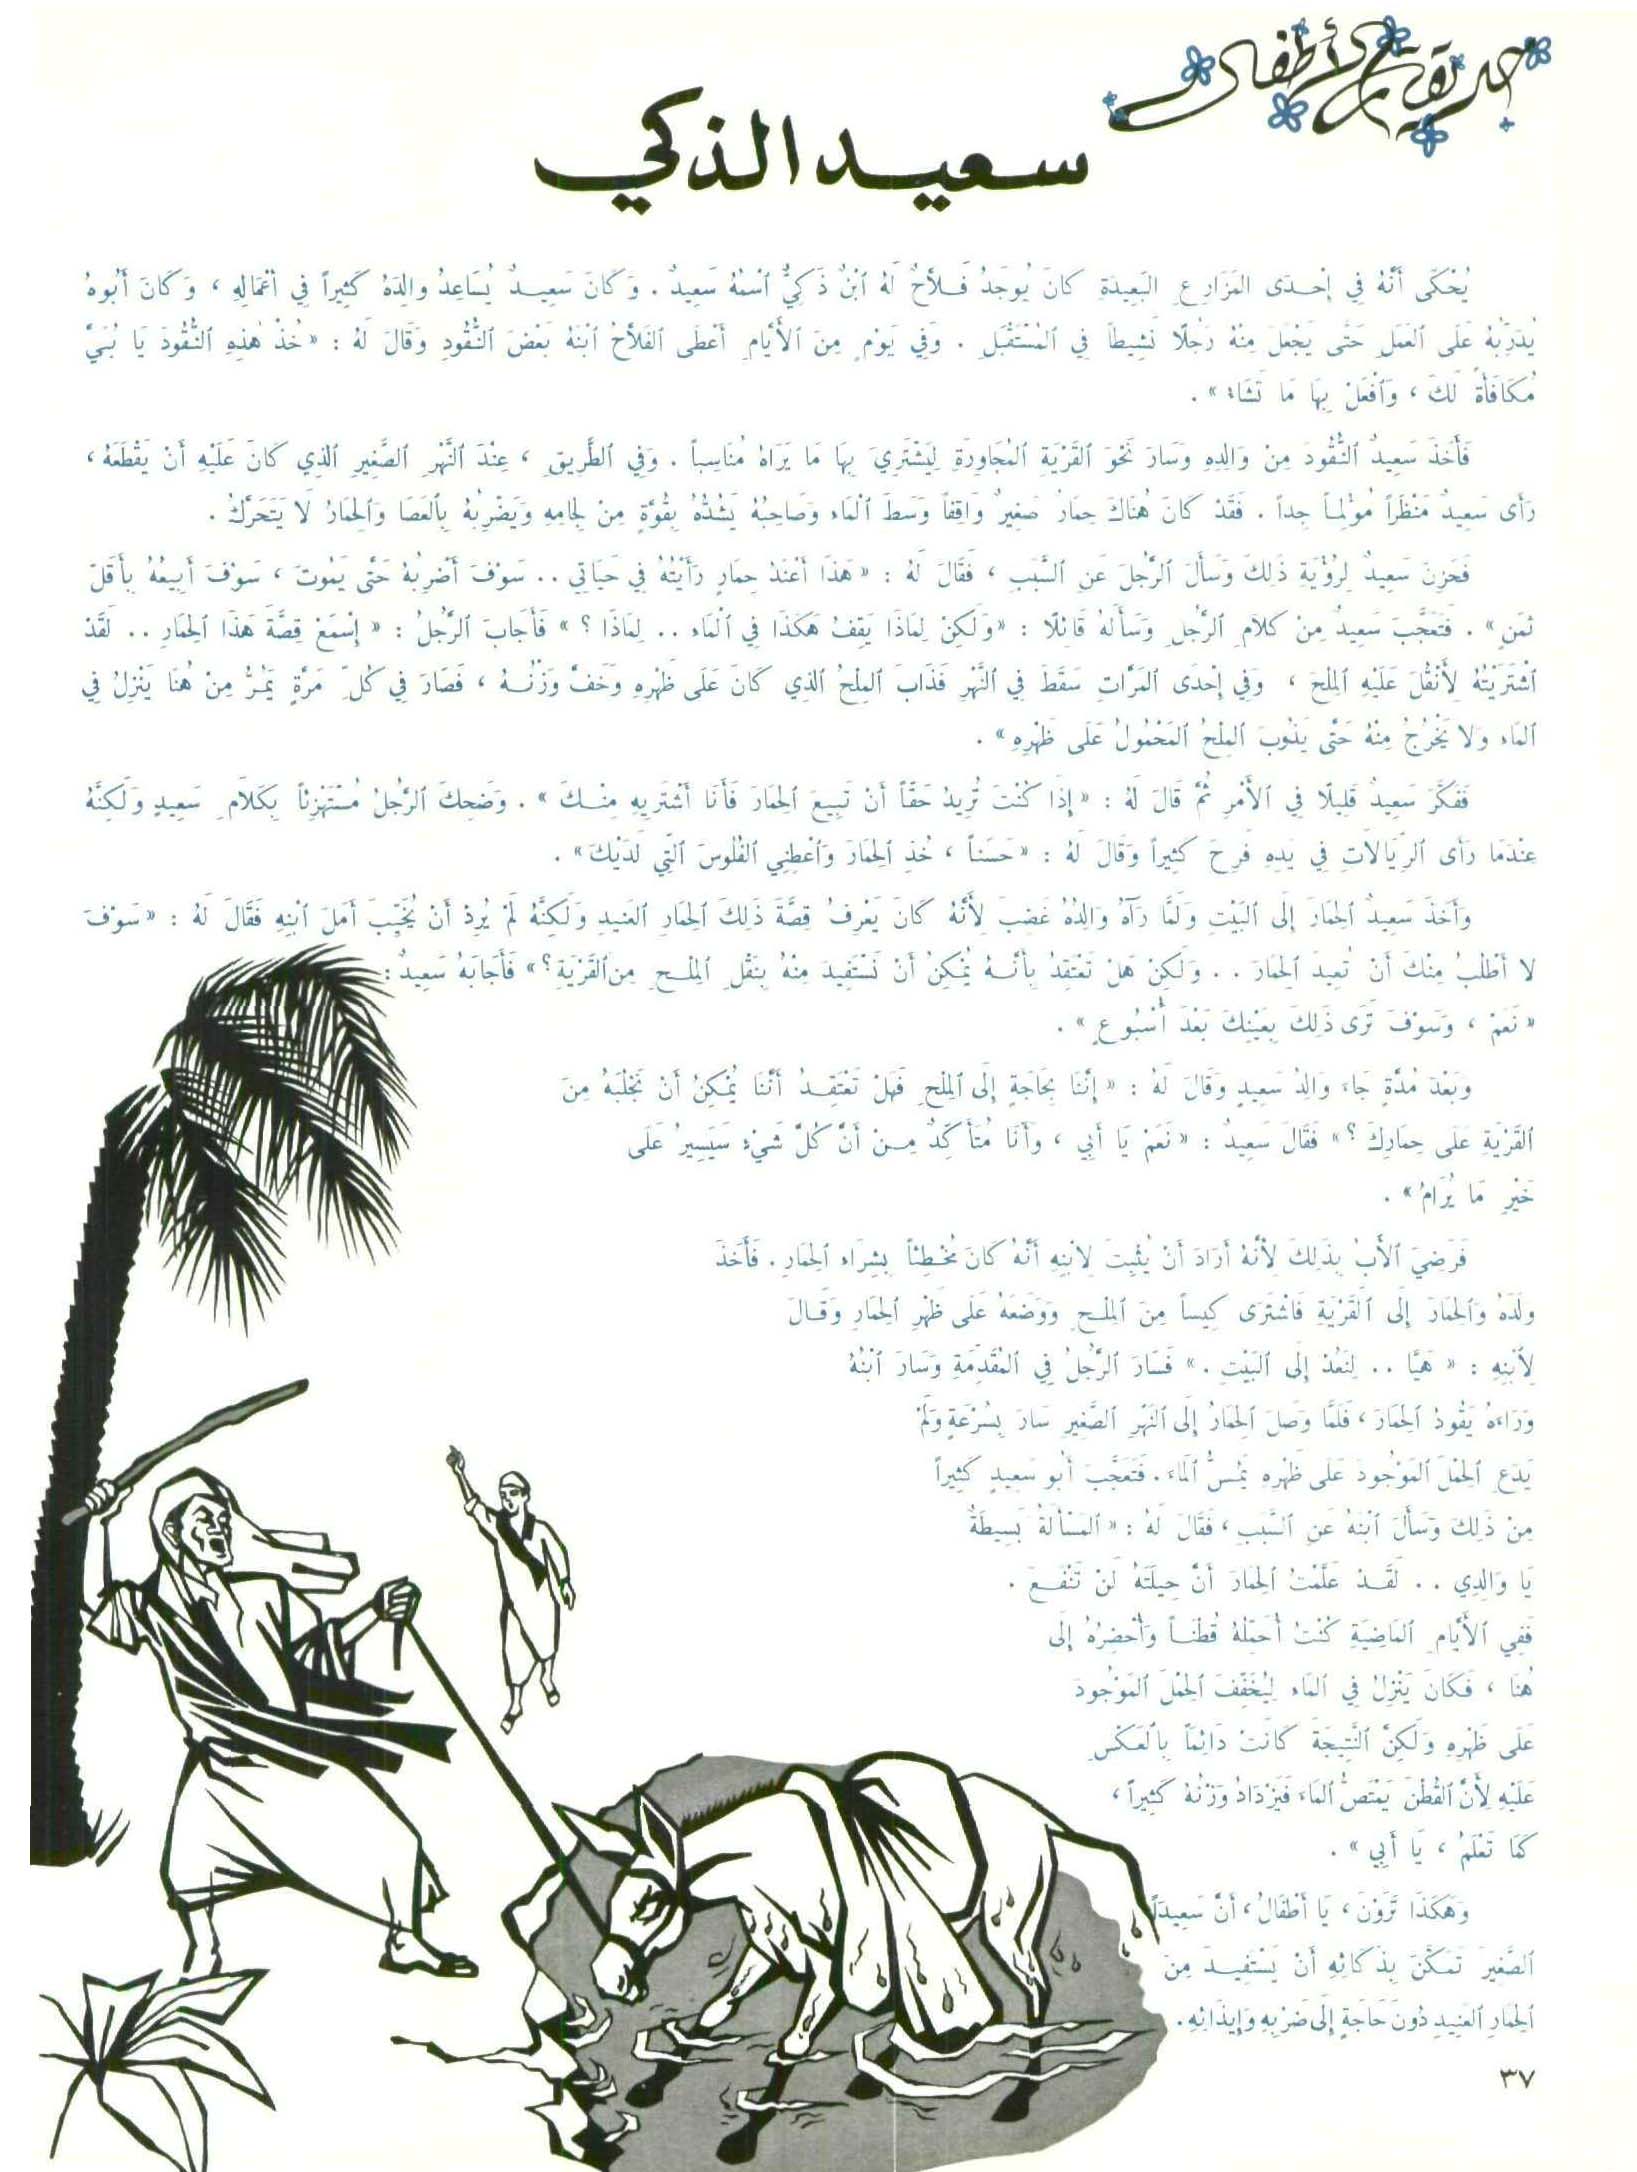 حديقة الأطفال
سعيد الذكي
يُحْكَى أَنَّهُ فِي إِحْدَى المَزَارِعِ البَعِيدَةِ كَانَ يُوجَدُ فَلاَّحٌ لَهُ ٱبْنٌ ذَكِيٌّ ٱسْمُهُ سَعِيدٌ . وَكَانَ سَعِيدٌ يُسَاعِدُ والِدَهُ كَثِيراً فِي أَعْمَالِهِ ، وَكَانَ أَبُوهُ
يُدَرِّبُهُ عَلَى العَمَلِ حَتَّى يَجْعَلَ مِنْهُ رَجُلًا نَشِيطاً فِي المُسْتَقْبَلِ . وَفِي يَوْمٍ مِنَ الأَيَّامِ أَعْطَى الفَلاَّحُ ابْنَهُ بَعْضَ النُّقُودِ وَقَالَ لَهُ : «خُذْ هٰذِهِ النُّقُودَ يَا بُنَيَّ
مُكَافَأَةً لَكَ ، وَٱفْعَلْ بِهَا مَا تَشَاءُ» .
فَأَخَذَ سَعِيدٌ النُّقُودَ مِنْ وَالِدِهِ وَسَارَ نَحْوَ القَرْيَةِ المُجَاوِرَةِ لِيَشْتَرِيَ بِهَا مَا يَرَاهُ مُنَاسِباً . وَفِي الطَّرِيقِ ، عِنْدَ النَّهْرِ الصَّغِيرِ الَّذِي كَانَ عَلَيْهِ أَنْ يَقْطَعَهُ ،
رَأَى سَعِيدٌ مَنْظَراً مُؤْلِماً جِداً . فَقَدْ كَانَ هُنَاكَ حِمَارٌ صَغِيرٌ وَاقِفاً وَسَطَ ٱلْمَاءِ وَصَاحِبُهُ يَشُدُّهُ بِقُوَّةٍ مِنْ لِجَامِهِ وَيَضْرِبُهُ بِٱلعَصَا وَٱلحِمَارُ لَا يَتَحَرَّكُ .
فَحَزِنَ سَعِيدٌ لِرُؤْيَةِ ذَلِكَ وَسَأَلَ الرَّجُلَ عَنِ السَّبَبِ ، فَقَالَ لَهُ : «هَذَا أَعْنَدُ حِمَارٍ رَأَيْتُهُ فِي حَيَاتِي .. سَوْفَ أَضْرِبُهُ حَتَّى يَمُوتَ ، سَوْفَ أَبِيعُهُ بِأَقَلِّ
ثَمَنٍ» . فَتَعَجَّبَ سَعِيدٌ مِنْ كَلاَمِ الرَّجُلِ وَسَأَلَهُ قَائِلًا : «وَلَكِنْ لِمَاذَا يَقِفُ هَكَذَا فِي ٱلْمَاءِ .. لِمَاذَا ؟» فَأَجَابَ الرَّجُلُ : «إِسْمَعْ قِصَّةَ هَذَا الحِمَارِ .. لَقَدْ
ٱشْتَرَيْتُهُ لِأَنْقُلَ عَلَيْهِ المِلْحَ ، وَفِي إِحْدَى المَرَّاتِ سَقَطَ فِي النَّهْرِ فَذَابَ المِلْحُ الَّذِي كَانَ عَلَى ظَهْرِهِ وَخَفَّ وَزْنُهُ ، فَصَارَ فِي كُلِّ مَرَّةٍ يَمُرُّ مِنْ هُنَا يَنْزِلُ فِي
المَاءِ وَلا يَخْرُجُ مِنْهُ حَتَّى يَذُوبَ المِلْحُ المَحْمُولُ عَلَى ظَهْرِهِ» .
فَفَكَّرَ سَعِيدٌ قَلِيلًا فِي الأَمْرِ ثُمَّ قَالَ لَهُ : «إِذَا كُنْتَ تُرِيدُ حَقّاً أَنْ تَبِيعَ الحِمَارَ فَأَنَا أَشْتَرِيهِ مِنْكَ» . وَضَحِكَ الرَّجُلُ مُسْتَهْزِئاً بِكَلاَمِ سَعِيدٍ وَلَكِنَّهُ
عِنْدَمَا رَأَى الرِّيَالاَتِ فِي يَدِهِ فَرِحَ كَثِيراً وَقَالَ لَهُ : «حَسَناً ، خُذِ الحِمَارَ وَأَعْطِنِي الفُلُوسَ الَّتِي لَدَيْكَ» .
وَأَخَذَ سَعِيدٌ الحِمَارَ إِلَى البَيْتِ وَلَمَّا رَآهُ وَالِدُهُ غَضِبَ لِأَنَّهُ كَانَ يَعْرِفُ قِصَّةَ ذَلِكَ الحِمَارِ العَنِيدِ وَلَكِنَّهُ لَمْ يُرِدْ أَنْ يُخَيِّبَ أَمَلَ ابْنِهِ فَقَالَ لَهُ : «سَوْفَ
لا أَطْلُبُ مِنْكَ أَنْ تُعِيدَ الحِمَارَ .. وَلَكِنْ هَلْ تَعْتَقِدُ بِأَنَّهُ يُمْكِنُ أَنْ نَسْتَفِيدَ مِنْهُ بِنَقْلِ المِلْحِ مِنَ القَرْيَةِ؟» فَأَجَابَهُ سَعِيدٌ :
«نَعَمْ ، وَسَوْفَ تَرَى ذَلِكَ بِعَيْنِكَ بَعْدَ أُسْبُوعٍ» .
وَبَعْدَ مُدَّةٍ جَاءَ وَالِدُ سَعِيدٍ وَقَالَ لَهُ : «إِنَّنَا بِحَاجَةٍ إِلَى المِلْحِ فَهَلْ تَعْتَقِدُ أَنَّنَا يُمْكِنُ أَنْ نَجْلُبَهُ مِنَ
القَرْيَةِ عَلَى حِمَارِكَ ؟» فَقَالَ سَعِيدٌ : «نَعَمْ يَا أَبِي ، وَأَنَا مُتَأَكِّدٌ مِنْ أَنَّ كُلَّ شَيْءٍ سَيَسِيرُ عَلَى
خَيْرِ مَا يُرَامُ» .
فَرَضِيَ الأَبُ بِذَلِكَ لِأَنَّهُ أَرَادَ أَنْ يُثْبِتَ لِابْنِهِ أَنَّهُ كَانَ مُخْطِئاً بِشِرَاءِ الحِمَارِ . فَأَخَذَ
وَلَدَهُ وَالحِمَارَ إِلَى القَرْيَةِ فَاشْتَرَى كِيساً مِنَ المِلْحِ وَوَضَعَهُ عَلَى ظَهْرِ الحِمَارِ وَقَالَ
لِٱبْنِهِ : «هَيَّا .. لِنَعُدْ إِلَى البَيْتِ .» فَسَارَ الرَّجُلُ فِي المُقَدِّمَةِ وَسَارَ ٱبْنُهُ
وَرَاءَهُ يَقُودُ الحِمَارَ ، فَلَمَّا وَصَلَ الحِمَارُ إِلَى النَّهْرِ الصَّغِيرِ سَارَ بِسُرْعَةٍ وَلَمْ
يَدَعِ الحِمْلَ المَوْجُودَ عَلَى ظَهْرِهِ يَمَسُّ المَاءَ . فَتَعَجَّبَ أَبُو سَعِيدٍ كَثِيراً
مِنْ ذَلِكَ وَسَأَلَ ٱبْنَهُ عَنِ السَّبَبِ ، فَقَالَ لَهُ : «المَسْأَلَةُ بَسِيطَةٌ
يَا وَالِدِي .. لَقَدْ عَلَّمْتُ الحِمَارَ أَنَّ حِيلَتَهُ لَنْ تَنْفَعَ .
فَفِي الأَيَّامِ المَاضِيَةِ كُنْتُ أُحَمِّلُهُ قُطْناً وَأُحْضِرُهُ إِلَى
هُنَا ، فَكَانَ يَنْزِلُ فِي المَاءِ لِيُخَفِّفَ الحِمْلَ المَوْجُودَ
عَلَى ظَهْرِهِ وَلَكِنَّ النَّتِيجَةَ كَانَتْ دَائِماً بِالعَكْسِ
عَلَيْهِ لِأَنَّ القُطْنَ يَمْتَصُّ المَاءَ فَيَزْدَادُ وَزْنُهُ كَثِيراً ،
كَمَا تَعْلَمُ ، يَا أَبِي» .
وَهَكَذَا تَرَوْنَ ، يَا أَطْفَالُ ، أَنَّ سَعِيداً
الصَّغِيرَ تَمَكَّنَ بِذَكَائِهِ أَنْ يَسْتَفِيدَ مِنَ
الحِمَارِ العَنِيدِ دُونَ حَاجَةٍ إِلَى ضَرْبِهِ وَإِيذَائِهِ .
٣٧